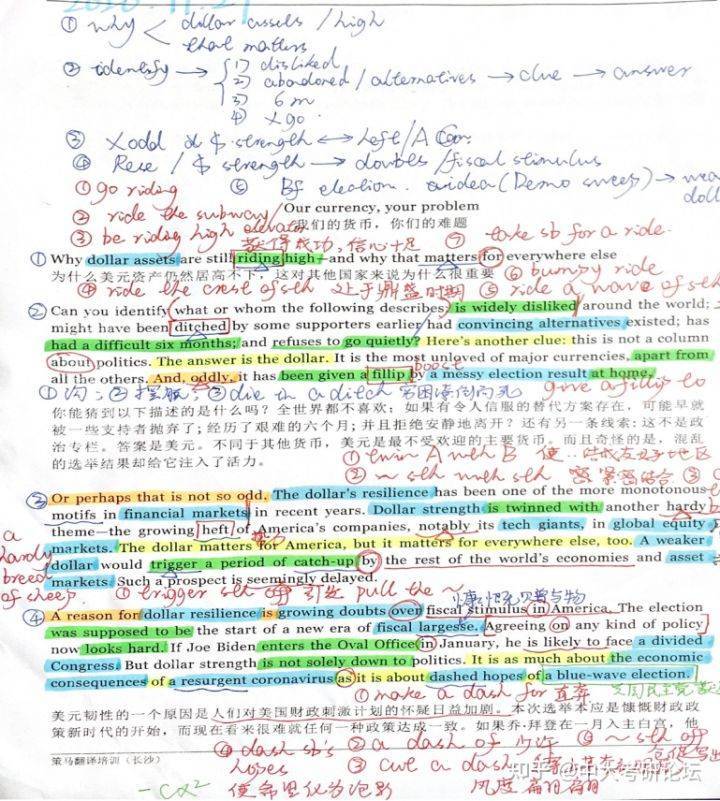 2020.11.27
① why < dollar assets / high
that matters
② identify → 1) disliked
2) abandoned / alternatives → clue → answer
3) 6 m
4) X go
③ X odd $ strength ↔ heft / A Com
④ Rese / $ strength → doubts / fiscal stimulus
① go riding ⑤ Bf election. (Demo sweep) →
② ride the subway /
Our currency, your problem
③ be riding high elevator
我们的货币，你们的难题
获得成功，信心十足 ⑦ take sb for a ride.
① Why dollar assets are still riding high—and why that matters for everywhere else
为什么美元资产仍然居高不下，这对其他国家来说为什么很重要 ⑥ bumpy ride
④ ride the crest of sth 处于鼎盛时期 ⑤ ride a wave of sth
② Can you identify what or whom the following describes: is widely disliked around the world;
might have been ditched by some supporters earlier had convincing alternatives existed; has
had a difficult six months; and refuses to go quietly? Here's another clue: this is not a column
about politics. The answer is the dollar. It is the most unloved of major currencies, apart from
boost
all the others. And, oddly, it has been given a fillip by a messy election result at home.
① 沟； ② ③ die in a ditch give a fillip to
你能猜到以下描述的是什么吗？全世界都不喜欢；如果有令人信服的替代方案存在，可能早就
被一些支持者抛弃了；经历了艰难的六个月；并且拒绝安静地离开？还有另一条线索：这不是政
治专栏。答案是美元。不同于其他货币，美元是最不受欢迎的主要货币。而且奇怪的是，混乱
的选举结果却给它注入了活力。
① twin A with B 使
② ~ sth with sth 紧密结合 ③
③ Or perhaps that is not so odd. The dollar's resilience has been one of the more monotonous
motifs in financial markets in recent years. Dollar strength is twinned with another hardy
theme—the growing heft of America's companies, notably its tech giants, in global equity
markets. The dollar matters for America, but it matters for everywhere else, too. A weaker
dollar would trigger a period of catch-up by the rest of the world's economies and asset
markets. Such a prospect is seemingly delayed.
a hardy breed of sheep.
① trigger sth 引发 pull the ~
④ A reason for dollar resilience is growing doubts over fiscal stimulus in America. The election
was supposed to be the start of a new era of fiscal largesse. Agreeing on any kind of policy
now looks hard. If Joe Biden enters the Oval Office in January, he is likely to face a divided
Congress. But dollar strength is not solely down to politics. It is as much about the economic
consequences of a resurgent coronavirus as it is about dashed hopes of a blue-wave election.
① make a dash for 直奔
美元韧性的一个原因是人们对美国财政刺激计划的怀疑日益加剧。本次选举本应是慷慨财政政
策新时代的开始，而现在看来很难就任何一种政策达成一致。如果乔·拜登在一月入主白宫，他
④ dash sb's hopes ② a dash of 少许 ⑤ ~ sth off
使希望化为泡影 ③ cut a dash
策马翻译培训（长沙）
知乎 @中大考研论坛